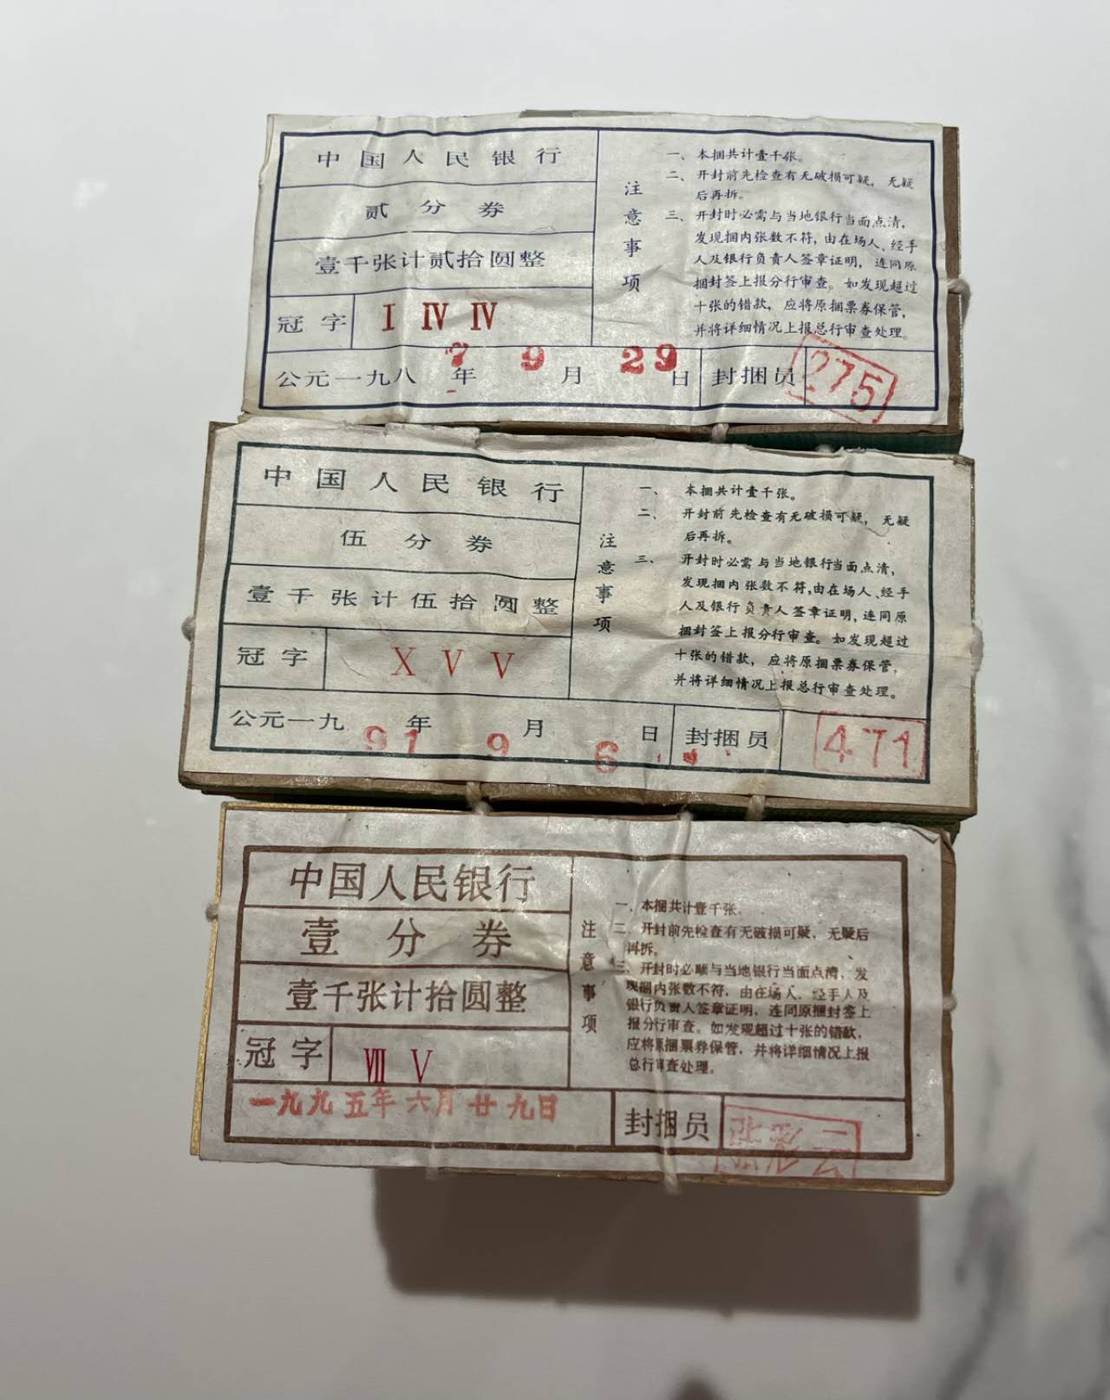 中国人民银行
贰分券
壹千张计贰拾圆整
冠字 Ⅰ Ⅳ Ⅳ
公元一九八7年9月29日
封捆员 275
注意事项
一、本捆共计壹千张。
二、开封前先检查有无破损可疑，无疑
后再拆。
三、开封时必需与当地银行当面点清，
发现捆内张数不符，由在场人、经手
人及银行负责人签章证明，连同原
捆封签上报分行审查。如发现超过
十张的错款，应将原捆票券保管，
并将详细情况上报总行审查处理。
中国人民银行
伍分券
壹千张计伍拾圆整
冠字 Ⅹ Ⅴ Ⅴ
公元一九91年9月6日
封捆员 471
注意事项
一、本捆共计壹千张。
二、开封前先检查有无破损可疑，无疑
后再拆。
三、开封时必需与当地银行当面点清，
发现捆内张数不符，由在场人、经手
人及银行负责人签章证明，连同原
捆封签上报分行审查。如发现超过
十张的错款，应将原捆票券保管，
并将详细情况上报总行审查处理。
中国人民银行
壹分券
壹千张计拾圆整
冠字 Ⅶ Ⅴ
一九九五年六月廿九日
封捆员 张彩云
注意事项
一、本捆共计壹千张。
二、开封前先检查有无破损可疑，无疑后
再拆。
三、开封时必需与当地银行当面点清，发
现捆内张数不符，由在场人、经手人及
银行负责人签章证明，连同原捆封签上
报分行审查。如发现超过十张的错款，
应将原捆票券保管，并将详细情况上报
总行审查处理。